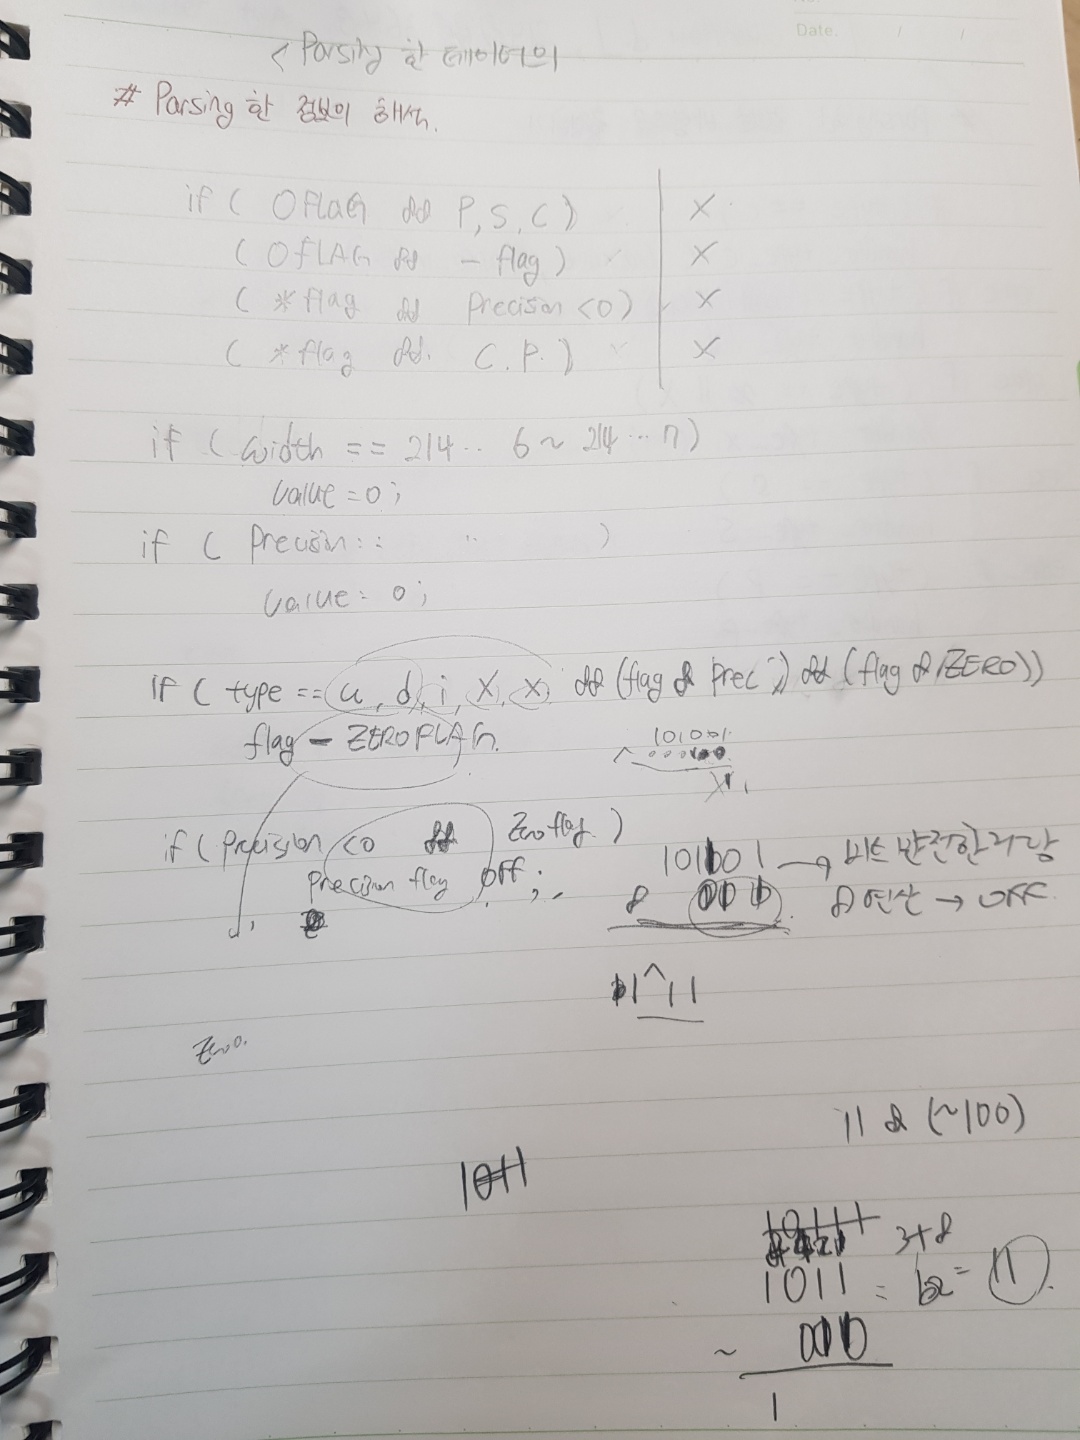 Date. / /
< Parsing 한 데이터의
# Parsing 한 정보의 해석.
if ( 0FLAG && P, S, C ) X
( 0fLAG && - flag ) X
( *flag && Precision <0 ) X
( *flag && C. P. ) X
if ( width == 214.. 6 ~ 214 ... 7 )
value = 0 ;
if ( Precision : : .. )
value = 0 ;
if ( type == u, d, i, X, x, && (flag & prec ) && (flag & ZERO))
flag - ZEROFLAG.
101001
^
if ( Precision <0 && Zero flag. )
Precision flag off ;
101001 → 비트 반전한 다랑
& 연산 → OFF.
11 ^ 11
Zero.
11 & (~100)
1011
3+8
1011 = = 11
~
1